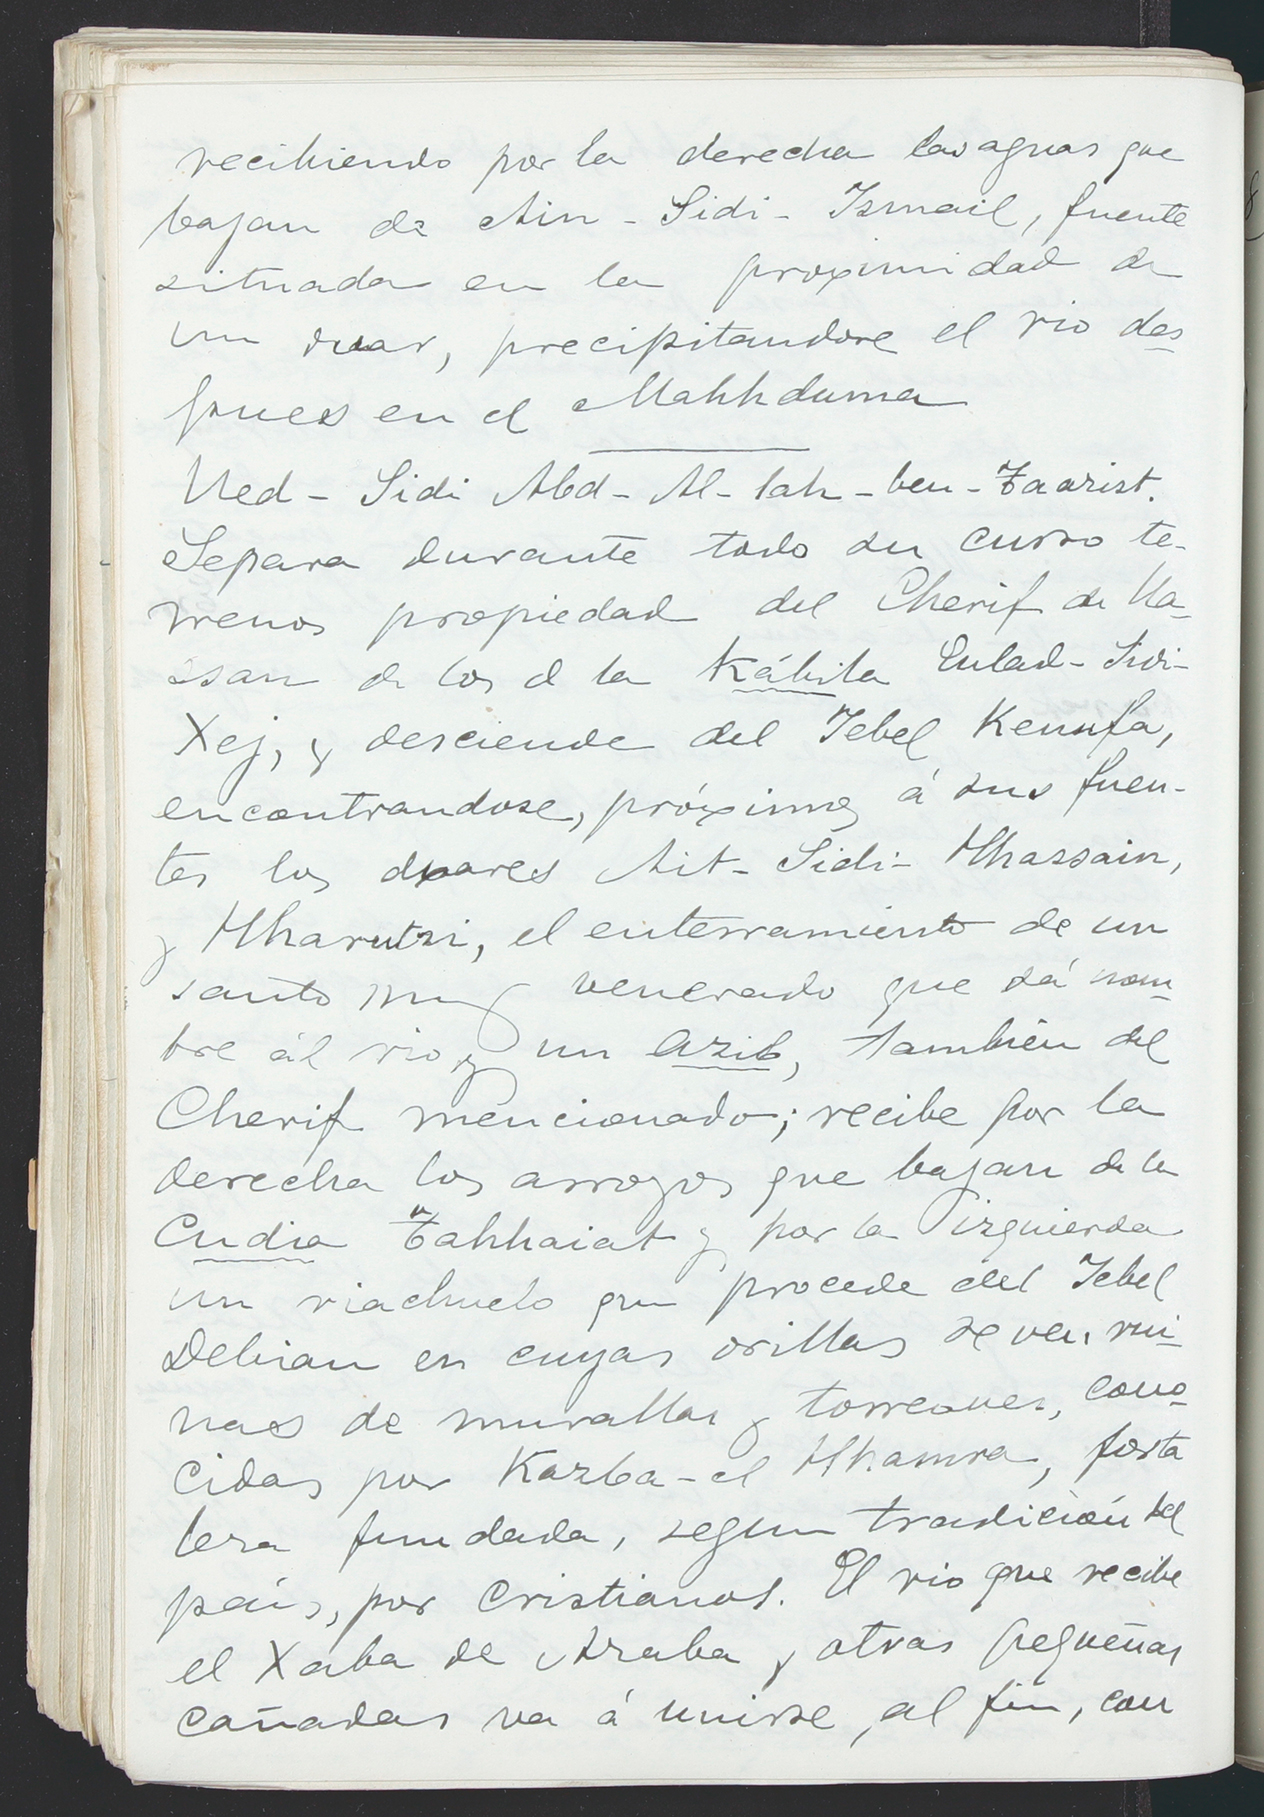 recibiendo por la derecha las aguas que
bajan de Ain - Sidi - Ismail, fuente
situada en la proximidad de
un duar, precipitandose el rio des
pues en el Mahhduma
Ued - Sidi Abd - Al - lah - ben - Taarist.
Separa durante todo su curso te-
rrenos propiedad del Cherif de Ua-
zsan de los d la Kábila Eulad - Sidi -
Xej, y desciende del Jebel Kennfa,
encontrandose, próximos á sus fuen-
tes los duares Ait - Sidi - Hhassain,
y Hharutzi, el enterramiento de un
santo muy venerado que dá nom-
bre ál rio y un azib, tambien del
Cherif mencionado; recibe por la
derecha los arroyos que bajan de la
Cudia Tahhaiat y por la izquierda
un riachuelo que procede del Jebel
Debian en cuyas orillas se ven rui-
nas de murallas y torreones, cono-
cidas por Kazba - el Hhamra, forta
leza fundada, segun tradición del
país, por Cristianos. El rio que recibe
el Xaba de Araba y otras pequeñas
cañadas va á unirse, al fin, con